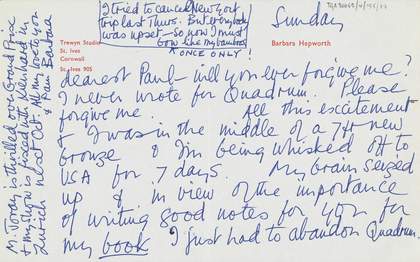 I tried to cancel New York
trip last Thurs. But everybody
was upset — so now I must
Gow like my bamboo
x ONCE ONLY!
Sunday
Trewyn Studio
St. Ives
Cornwall
St. Ives 905
Barbara Hepworth
dearest Paul — will you ever forgive me?
I never wrote for Quadrum. Please
forgive me. All this excitement
& I was in the middle of a 7ft new
bronze & I'm being whisked off to
USA for 7 days. My brain seized
up & in view of the importance
of writing good notes for you for
my book I just had to abandon Quadrum.
M. Joray is thrilled over Grand Prize
& my show is fixed with Lienhard in
Zurich next Oct. All my love to you
& Rani Barbara